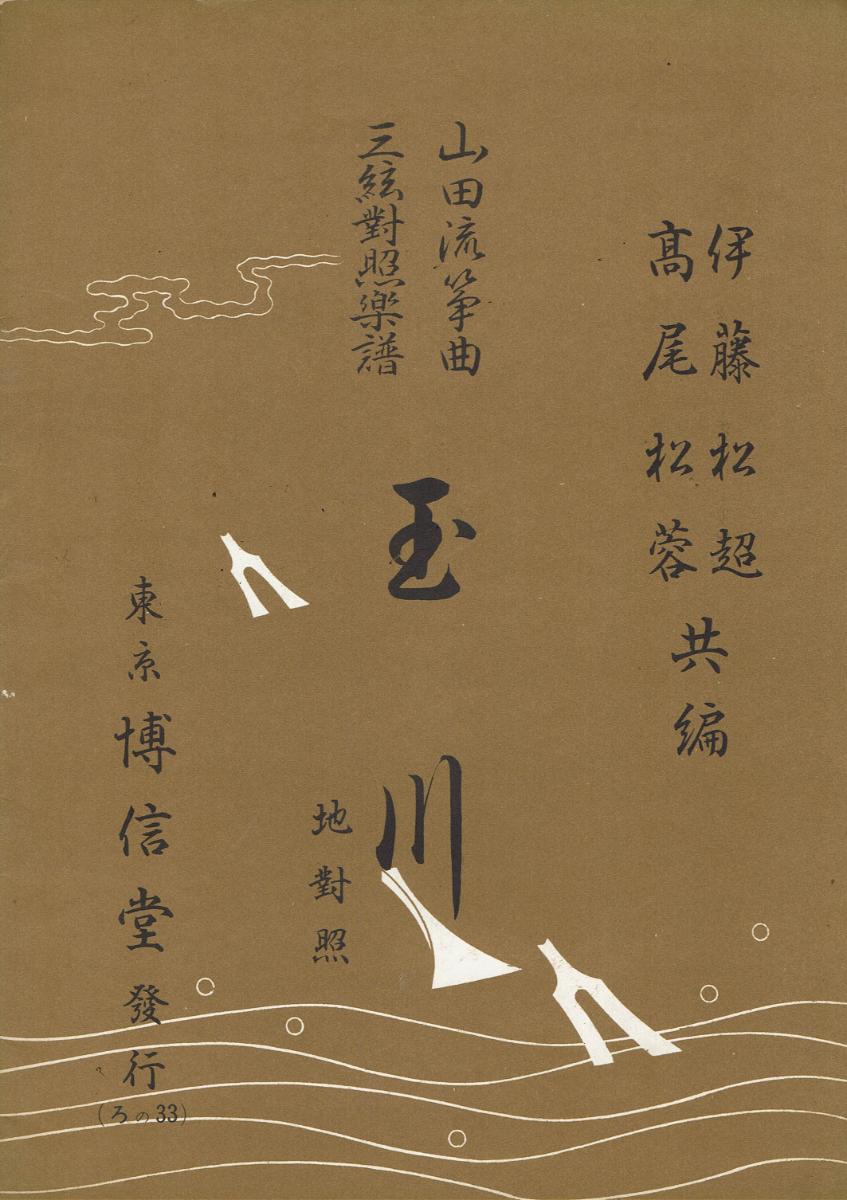 伊藤松超
高尾松蓉
共編
山田流箏曲
三絃對照楽譜
玉川
地對照
東京博信堂發行
(ろの33)